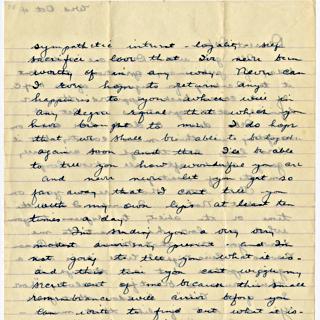 sympathetic interest - loyalty - self
sacrifice - love that I've never been
worthy of in any way. Never can
I ever hope to return any
happiness to you which will in
any degree equal that which you
have brought to me. I do hope
that we shall be able to be together
again soon and then I'll be able
to tell you how wonderful you are
and never never let you get so
far away that I can't tell you
with my own lips at least ten
times a day.
I'm sending you a very very
modest anniversary present - and I'm
not going to tell you what it is -
and this time you can't wiggle my
secret out of me because this small
remembrance will arrive before you
can write to find out what it is -